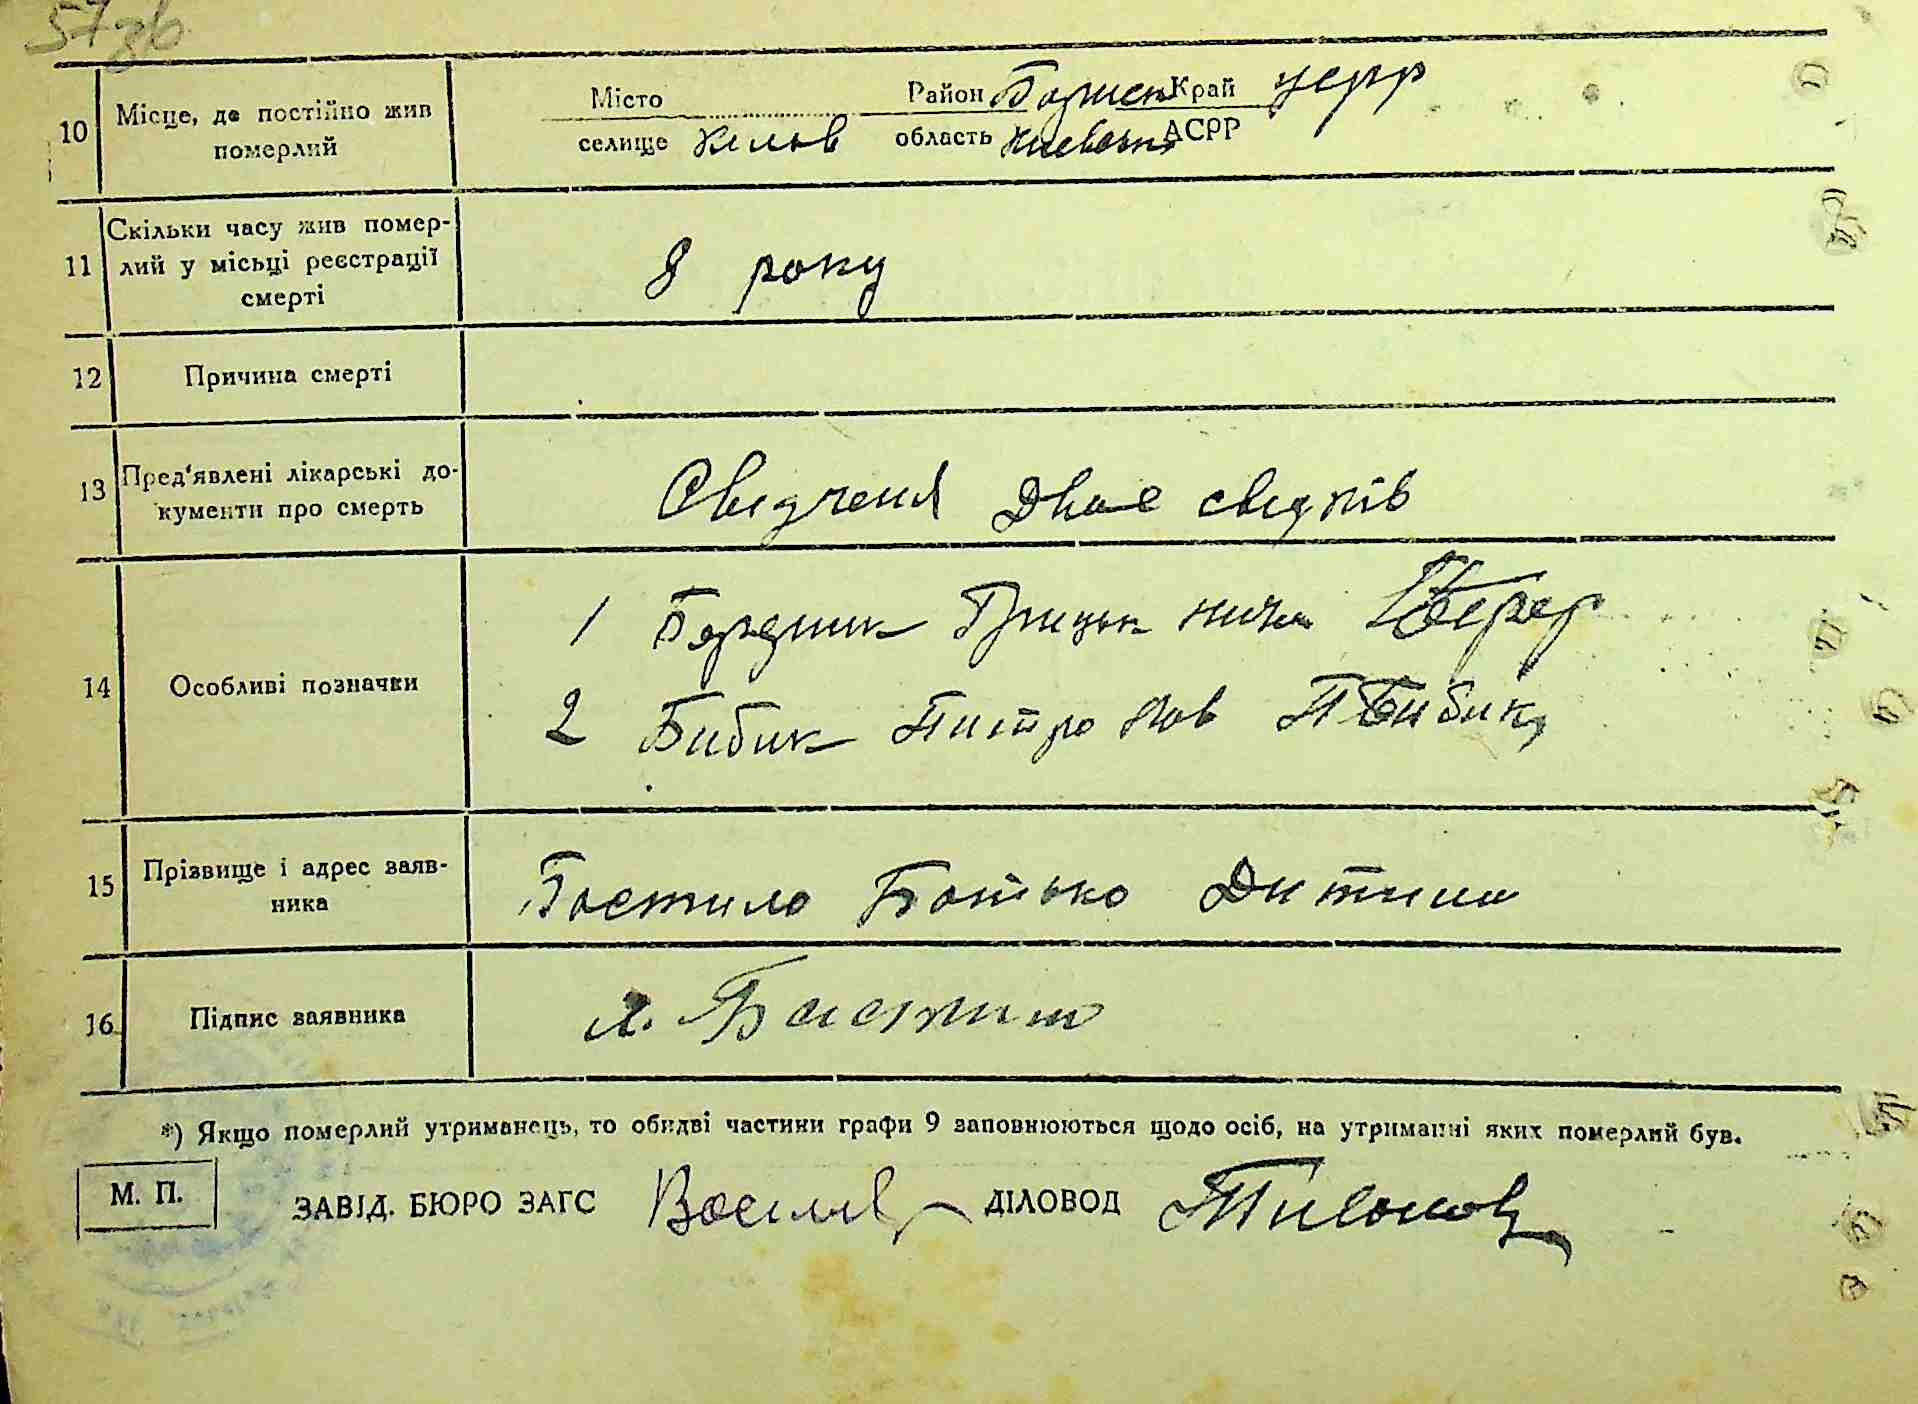 57зв
10 Місце, де постійно жив
померлий
Місто Район Край УСРР
селище область АСРР
11 Скільки часу жив помер-
лий у місьці реєстрації
смерті
8 року
12 Причина смерті
13 Пред'явлені лікарські до-
кументи про смерть
Свидченя двое свидків
14 Особливі позначки
1 Бердник Грицько
2 Бибик Питро П Бибик
15 Прізвище і адрес заяв-
ника
БостилоБотько Дитини
16 Підпис заявника
*) Якщо померлий утриманець, то обидві частини графи 9 заповнюються щодо осіб, на утриманні яких померлий був.
М. П.
ЗАВІД. БЮРО ЗАГС ДІЛОВОД